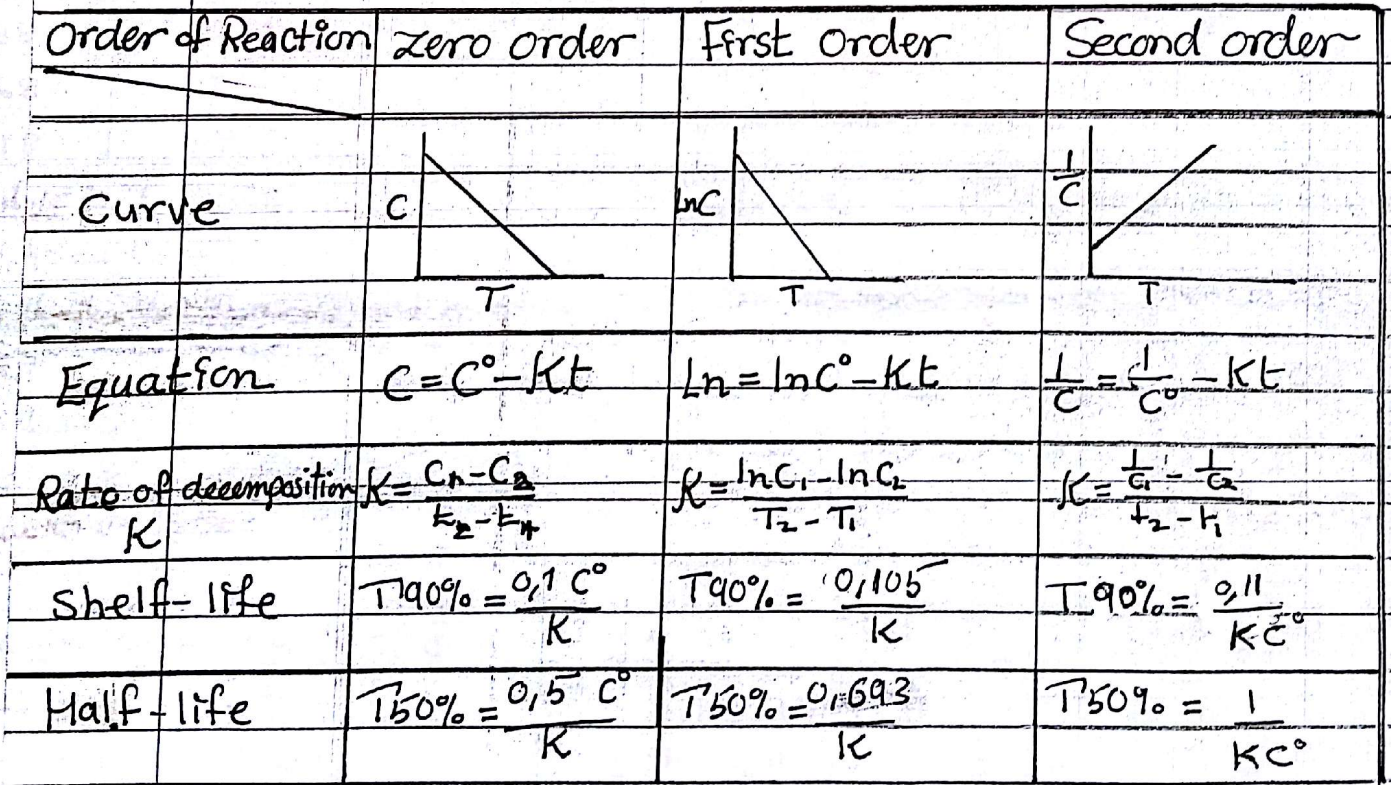 Order of Reaction zero order First order Second order
Curve C T LnC T 1/C T
Equation C = C° - Kt Ln = lnC° - Kt 1/C = 1/C° - Kt
Rate of decomposition K = C₁ - C₂ / t₂ - t₁ K = lnC₁ - lnC₂ / T₂ - T₁ K = 1/C₁ - 1/C₂ / t₂ - t₁
K
Shelf-life T90% = 0,1 C° / K T90% = 0,105 / K T90% = 0,11 / KC°
Half-life T50% = 0,5 C° / K T50% = 0,693 / K T50% = 1 / KC°